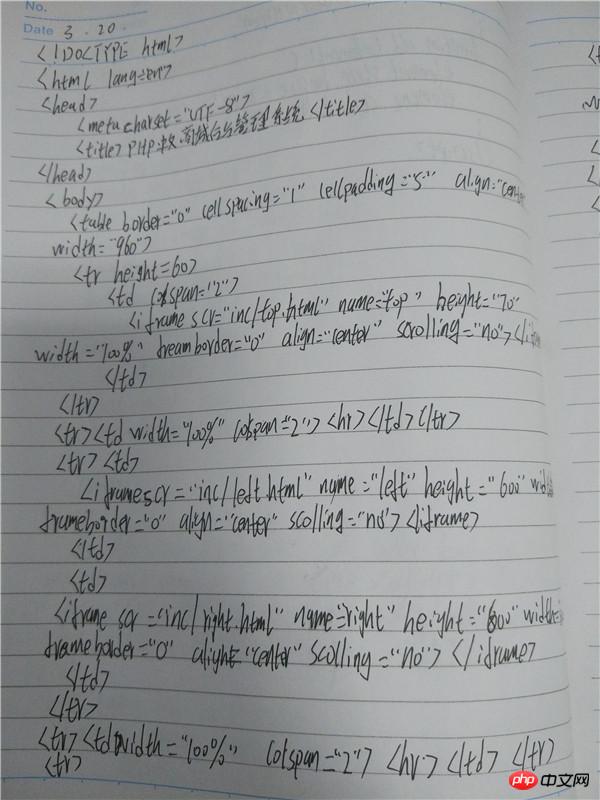 No.
Date 3. 20.
<!DOCTYPE html>
<html lang=en">
<head>
<meta charset="UTF-8">
<title>PHP 管理系统</title>
</head>
<body>
<table border="0" cellspacing="1" cellpadding="5" align="cente
width="960">
<tr height=60>
<td colspan="2">
<iframe scr="inc/top.html" name="top" height="70"
width="100%" freamborder="0" align="center" scrolling="no"></if
</td>
</tr>
<tr><td width="100%" colspan="2"><hr></td></tr>
<tr><td>
<iframe scr="inc/left.html" name="left" height="600" wid
frameborder="0" align="center" scolling="no"></iframe>
</td>
<td>
<iframe scr="inc/right.html" name="right" height="600" width=
frameborder="0" alight="center" scolling="no"></iframe>
</td>
</tr>
<tr><td width="100%" colspan="2"><hr></td></tr>
<tr>
php 中文网